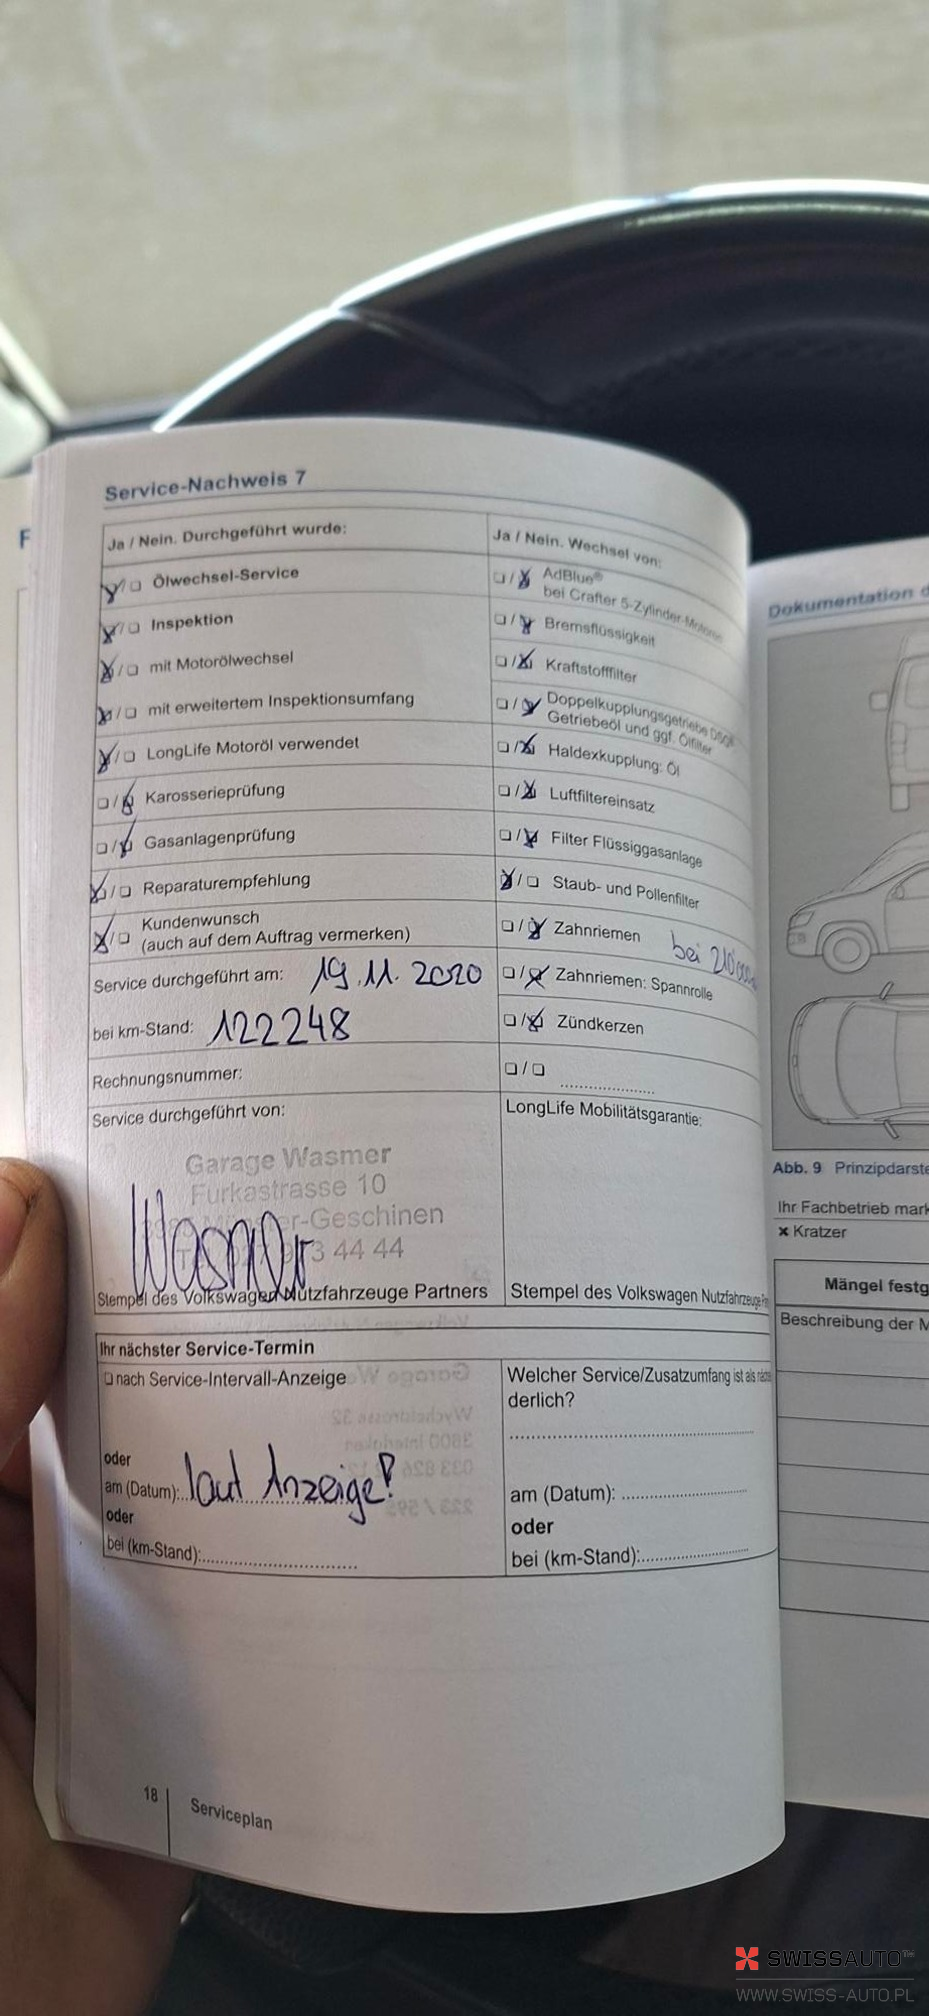 Service-Nachweis 7
Ja / Nein. Durchgeführt wurde:
Ölwechsel-Service
Inspektion
mit Motorölwechsel
mit erweitertem Inspektionsumfang
LongLife Motoröl verwendet
Karosserieprüfung
Gasanlagenprüfung
Reparaturempfehlung
Kundenwunsch
(auch auf dem Auftrag vermerken)
Service durchgeführt am: 19.11.2020
bei km-Stand: 122248
Rechnungsnummer:
Service durchgeführt von:
Garage Wasmer
Furkastrasse 10
-Geschinen
3 44 44
Wasmer
Stempel des Volkswagen Nutzfahrzeuge Partners
Ja / Nein. Wechsel von:
AdBlue®
bei Crafter 5-Zylinder-Motoren
Bremsflüssigkeit
Kraftstofffilter
Doppelkupplungsgetriebe DSG®
Getriebeöl und ggf. Ölfilter
Haldexkupplung: Öl
Luftfiltereinsatz
Filter Flüssiggasanlage
Staub- und Pollenfilter
Zahnriemen bei 210'000
Zahnriemen: Spannrolle
Zündkerzen
LongLife Mobilitätsgarantie:
Stempel des Volkswagen Nutzfahrzeuge
Ihr nächster Service-Termin
nach Service-Intervall-Anzeige
oder
am (Datum): laut Anzeige!
oder
bei (km-Stand):
Welcher Service/Zusatzumfang ist als
derlich?
am (Datum):
oder
bei (km-Stand):
18 Serviceplan
Dokumentation d
Abb. 9 Prinzipdarste
Ihr Fachbetrieb mark
× Kratzer
Mängel festg
Beschreibung der M
SWISSAUTO
WWW.SWISS-AUTO.PL